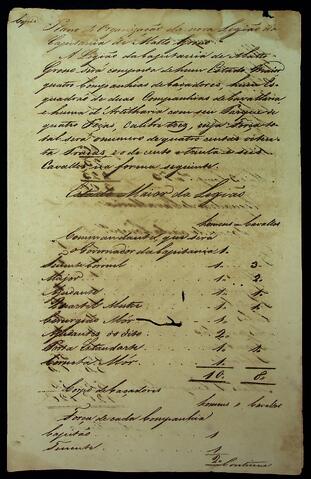 Plano d'Organização da nova Legião da
Capitania de Matto Grosso
A Legião da Capitania de Matto
Grosso será composta de hum Estado Maior
quatro Companhias de Caçadores, hum Es-
quadrão de duas Companhias de Cavallaria
e huma d'Artilharia com seu Parque de
quatro Peças Calibre tres, cuja força to-
tal será o numero de quatro centos oiten-
ta Praças, e o de cento e trinta e seis
Cavallos na forma seguinte.
Estado Maior da Legião
homens = Cavallos
Commandante, que será
o Governador da Capitania 1.
Tenente Coronel 1. 3.
Major 1. 2.
Ajudante 1. 1.
Quartel Mestre 1. 1.
Cirurgião Mór 1.
Ajudantes do dito 2.
Porta Estandarte 1. 1.
Corneta Mór 1.
10. 8.
Corpo de Caçadores homens = Cavallos
Força de cada Companhia
Capitão 1
Tenente 1
2 Continua